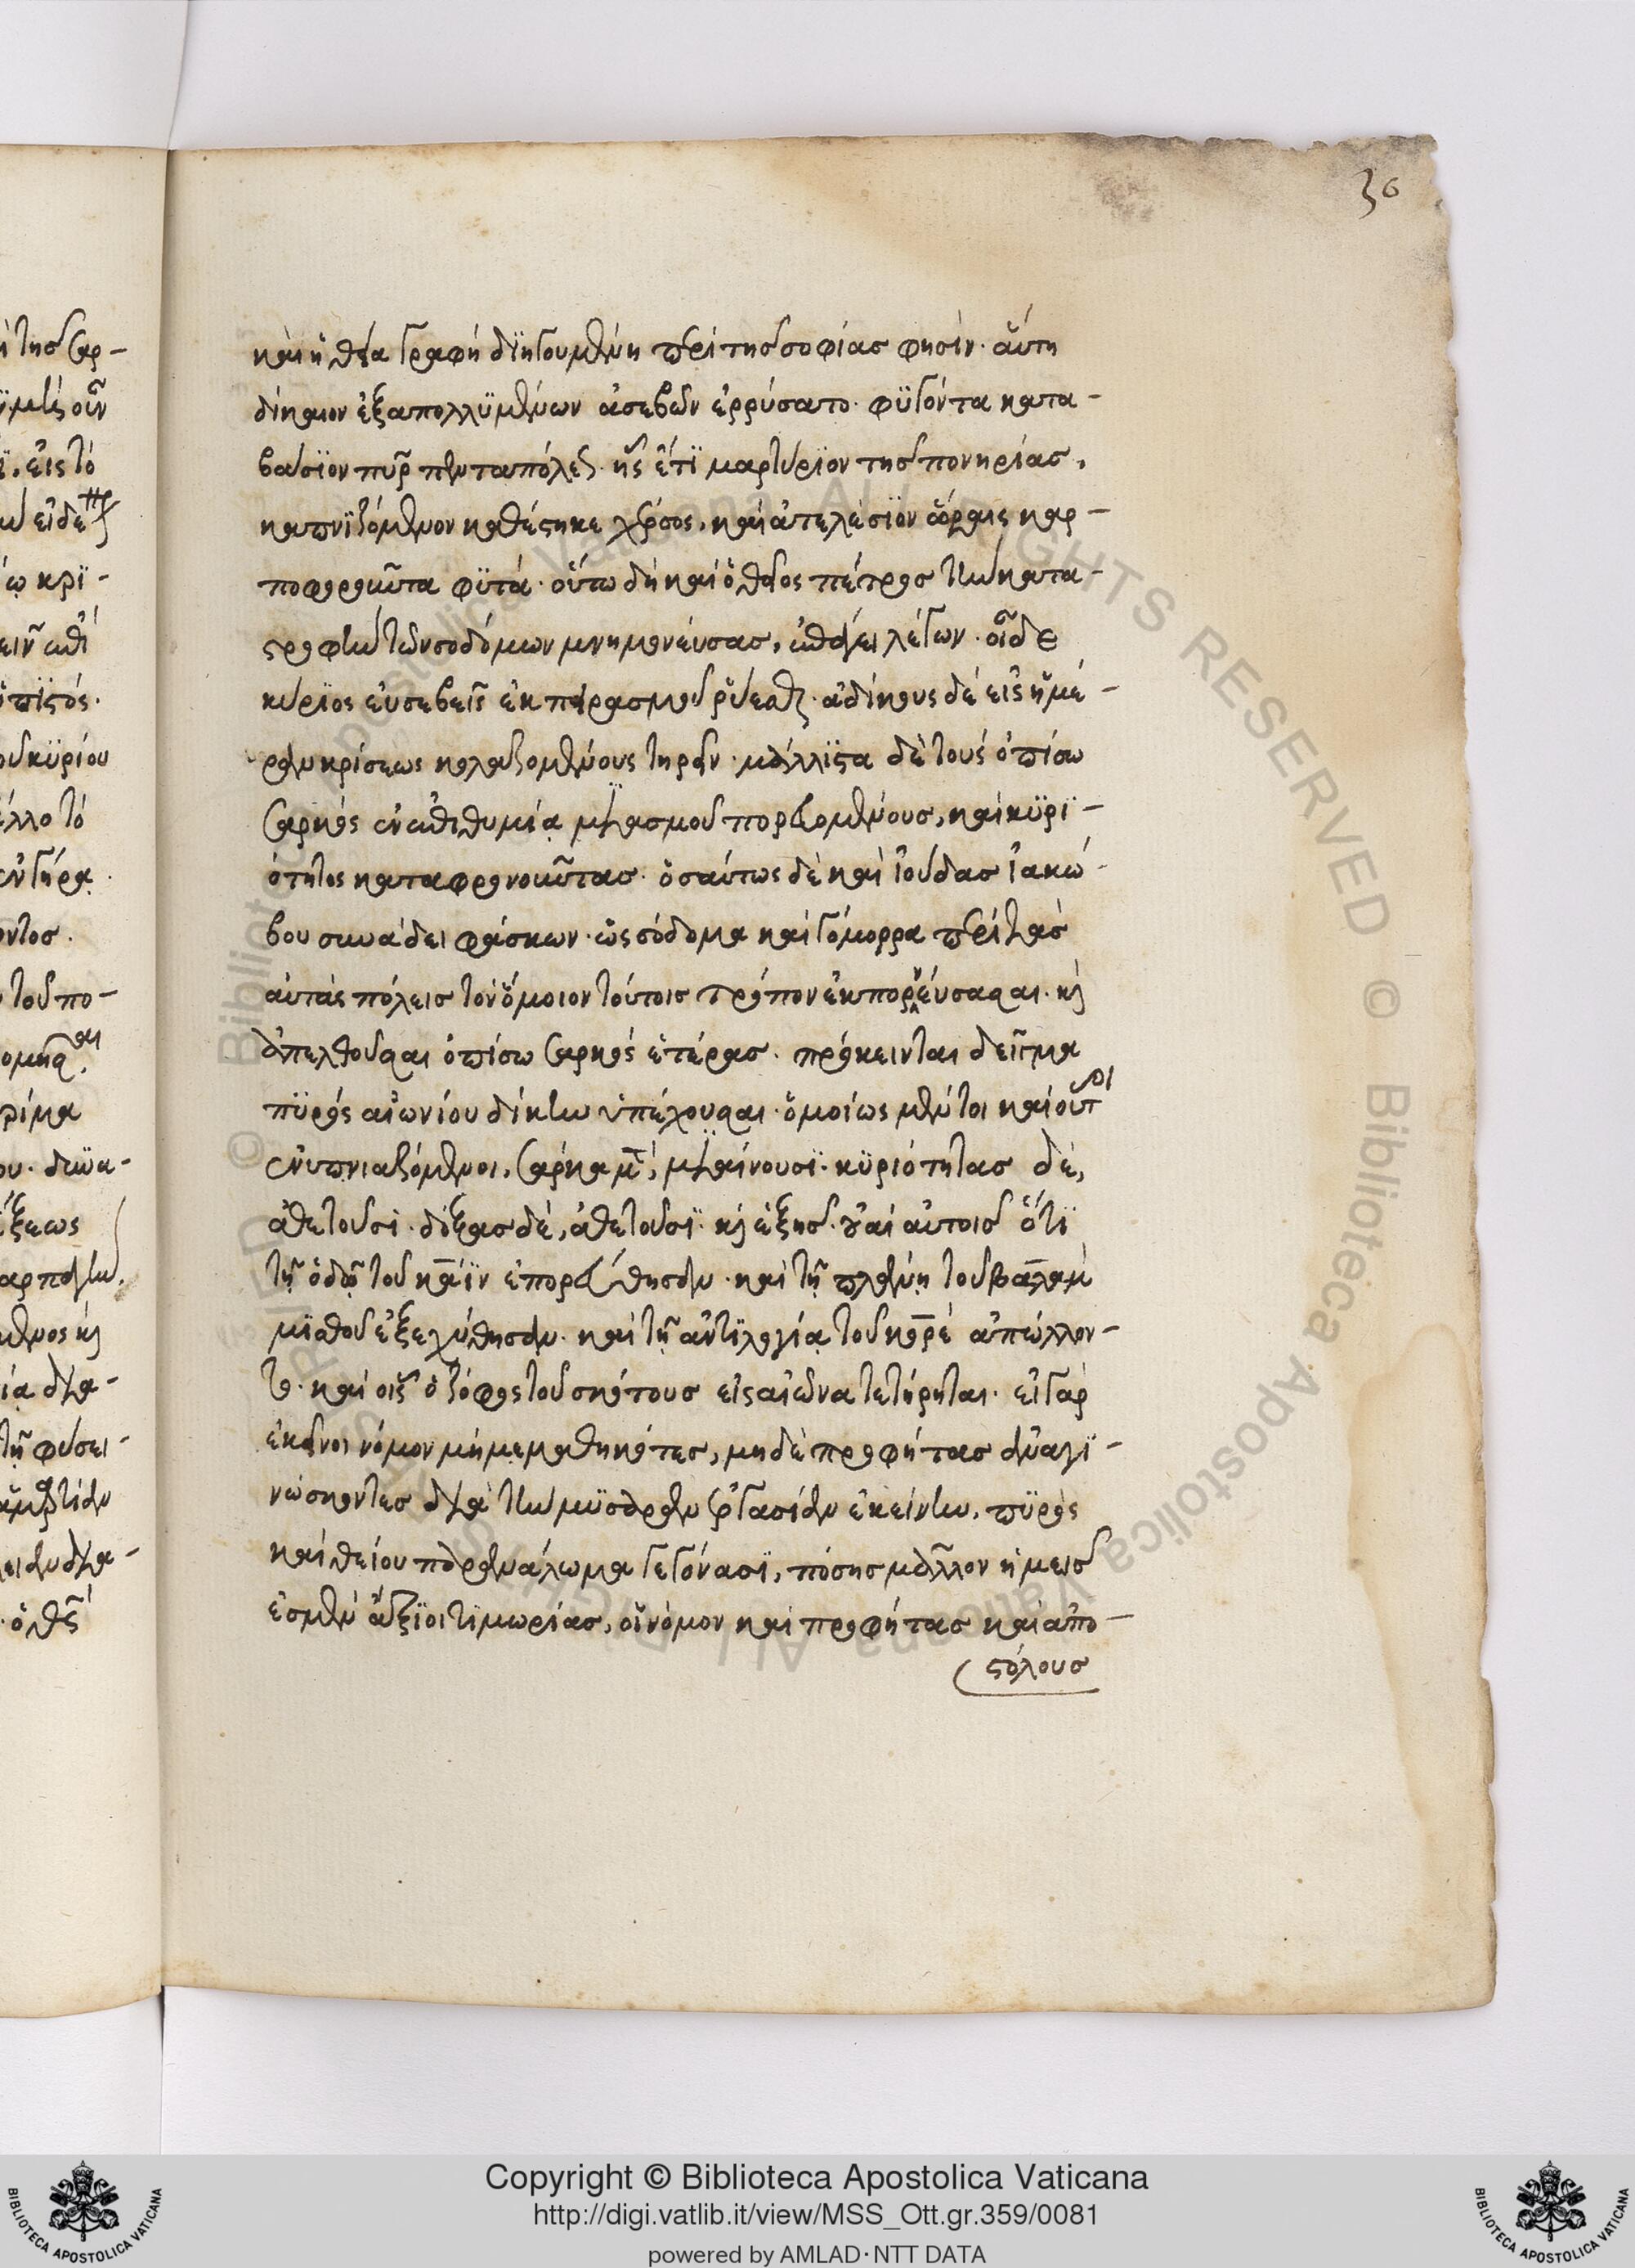 36
καὶ ἡ θεία γραφὴ διηγουμένη περὶ τῆς σοφίας φησίν· αὕτη
δίκαιον ἐξαπολλυμένων ἀσεβῶν ἐρρύσατο· φυγόντα κατα-
βάσιον πῦρ πενταπόλεως· ἧς ἔτι μαρτύριον τῆς πονηρίας,
καπνιζόμενον καθέστηκε χέρσος, καὶ ἀτελέσιν ὥραις καρ-
ποφοροῦντα φυτά· οὕτω δὴ καὶ ὁ θεῖος πέτρος τὴν κατα-
στροφὴν τῶν σοδόμων μνημονεύσας, ἐπάγει λέγων· οἶδε
κύριος εὐσεβεῖς ἐκ πειρασμοῦ ῥύεσθαι· ἀδίκους δὲ εἰς ἡμέ-
ραν κρίσεως κολαζομένους τηρεῖν· μάλλιστα δὲ τοὺς ὀπίσω
σαρκὸς ἐν ἐπιθυμίᾳ μιασμοῦ πορευομένους, καὶ κυρι-
ότητος καταφρονοῦντας· ὁσαύτως δὲ καὶ ἰούδας ἰακώ-
βου συνάδει φάσκων· ὡς σόδομα καὶ γόμορρα περὶ τὰς
αὐτὰς πόλεις τὸν ὅμοιον τούτοις τρόπον ἐκπορνεύσασαι· καὶ
ἀπελθοῦσαι ὀπίσω σαρκὸς ἑτέρας· πρόκεινται δεῖγμα
πυρὸς αἰωνίου δίκην ὑπέχουσαι· ὁμοίως μέντοι καὶ οὗτοι
ἐνυπνιαζόμενοι, σάρκα μὲν, μιαίνουσι· κυριότητας δέ,
ἀθετοῦσι· δόξας δέ, ἀθετοῦσι· καὶ ἑξῆς· οὐαὶ αὐτοῖς ὅτι
τῇ ὁδῷ τοῦ κάϊν ἐπορεύθησαν· καὶ τῇ πλάνῃ τοῦ βαλαὰμ
μισθοῦ ἐξεχύθησαν· καὶ τῇ ἀντιλογίᾳ τοῦ κορὲ ἀπώλλον-
το· καὶ οἷς ὁ ζόφος τοῦ σκότους εἰς αἰῶνα τετήρηται· εἰ γὰρ
ἐκεῖνοι νόμον μὴ μεμαθηκότες, μηδὲ προφήτας ἀναγι-
νώσκοντες διὰ τὴν μυσαρὰν ἐργασίαν ἐκείνην, πυρὸς
καὶ θείου παρανάλωμα γεγόνασι, πόσης μᾶλλον ἡμεῖς
ἐσμὲν ἄξιοι τιμωρίας, οἱ νόμον καὶ προφήτας καὶ ἀπο-
στόλους
Copyright © Biblioteca Apostolica Vaticana
http://digi.vatlib.it/view/MSS_Ott.gr.359/0081
powered by AMLAD·NTT DATA